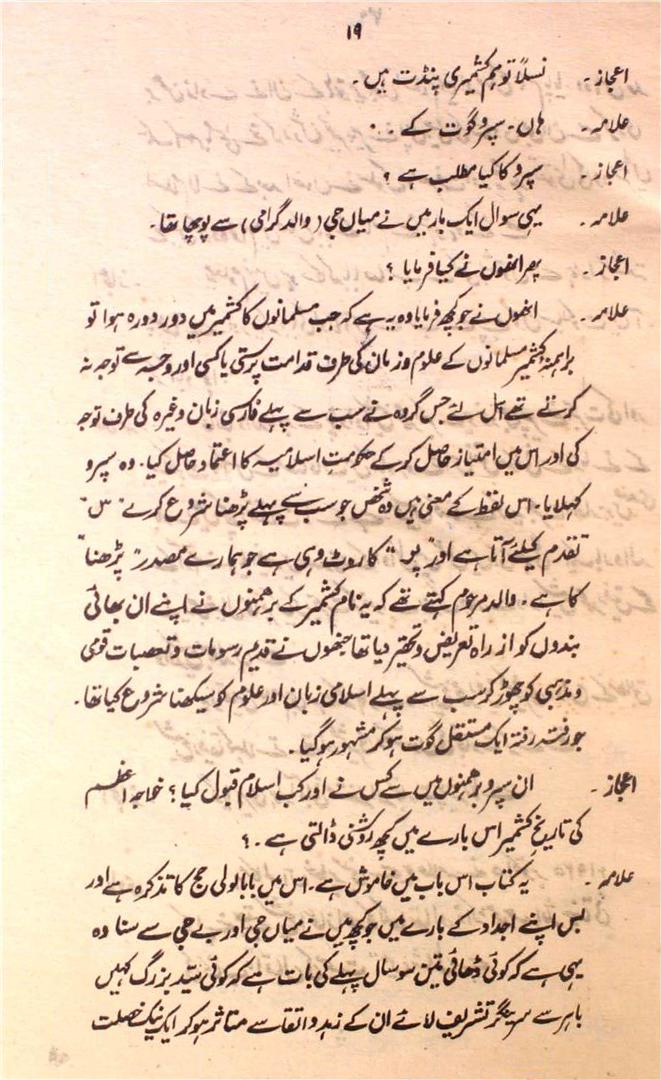 ۱۹
اعجاز۔ نسلاً تو ہم کشمیری پنڈت ہیں۔
علامہ۔ ہاں۔ سپرو گوت کے ...
اعجاز۔ سپرو کا کیا مطلب ہے؟
علامہ۔ یہی سوال ایک بار میں نے میاں جی (والد گرامی) سے پوچھا تھا۔
اعجاز۔ پھر انھوں نے کیا فرمایا؟
علامہ۔ انھوں نے جو کچھ فرمایا وہ یہ ہے کہ جب مسلمانوں کا کشمیر میں دور دورہ ہوا تو
براہمنہ کشمیر مسلمانوں کے علوم و زبان کی طرف قدامت پرستی یا کسی اور وجہ سے توجہ نہ
کرتے تھے اس لئے جس گروہ نے سب سے پہلے فارسی زبان وغیرہ کی طرف توجہ
کی اور اس میں امتیاز حاصل کر کے حکومت اسلامیہ کا اعتماد حاصل کیا۔ وہ سپرو
کہلایا۔ اس لفظ کے معنی ہیں وہ شخص جو سب سے پہلے پڑھنا شروع کرے "س"
تقدم کیلئے آتا ہے اور "پر" کا روٹ وہی ہے جو ہمارے مصدر "پڑھنا"
کا ہے۔ والد مرحوم کہتے تھے کہ یہ نام کشمیر کے برھمنوں نے اپنے ان بھائی
بندوں کو از راہ تعریض و تحقیر دیا تھا جنھوں نے قدیم رسومات و تعصبات قومی
و مذہبی کو چھوڑ کر سب سے پہلے اسلامی زبان اور علوم کو سیکھنا شروع کیا تھا۔
جو رفتہ رفتہ ایک مستقل گوت ہو کر مشہور ہو گیا۔
اعجاز۔ ان سپرو برھمنوں میں سے کس نے اور کب اسلام قبول کیا؟ خواجہ اعظم
کی تاریخ کشمیر اس بارے میں کچھ روشنی ڈالتی ہے۔؟
علامہ۔ یہ کتاب اس باب میں خاموش ہے۔ اس میں بابا لولی حج کا تذکرہ ہے اور
بس اپنے اجداد کے بارے میں جو کچھ میں نے میاں جی اور بے جی سے سنا وہ
یہی ہے کہ کوئی ڈھائی تین سو سال پہلے کی بات ہے کہ کوئی سید بزرگ کہیں
باہر سے سرینگر تشریف لائے ان کے زہد و اتقا سے متاثر ہو کر ایک نیک خصلت